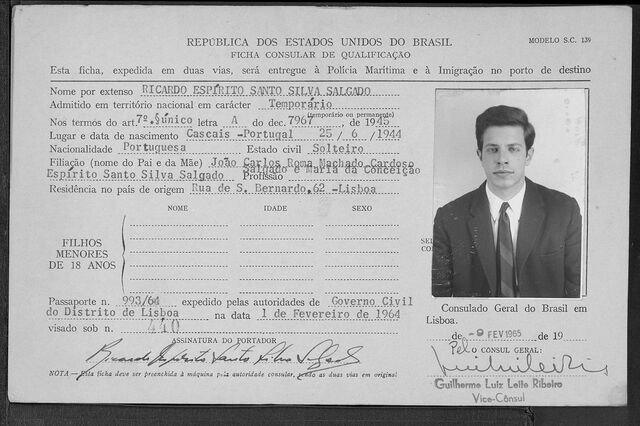 REPÚBLICA DOS ESTADOS UNIDOS DO BRASIL
MODELO S.C. 139
FICHA CONSULAR DE QUALIFICAÇÃO
Esta ficha, expedida em duas vias, será entregue à Polícia Marítima e à Imigração no porto de destino
Nome por extenso RICARDO ESPÍRITO SANTO SILVA SALGADO
Admitido em território nacional em carácter Temporário
(temporário ou permanente)
Nos termos do art. 7º. §único letra A do dec. 7967, de 1945
Lugar e data de nascimento Cascais -Portugal 25 / 6 /1944
Nacionalidade Portuguesa Estado civil Solteiro
Filiação (nome do Pai e da Mãe) João Carlos Roma Machado Cardoso
Salgado e Maria da Conceição
Espírito Santo Silva Salgado Profissão
Residência no país de origem Rua de S. Bernardo,62 -Lisboa
NOME IDADE SEXO
FILHOS
MENORES
DE 18 ANOS
Passaporte n. 993/64 expedido pelas autoridades de Governo Civil
do Distrito de Lisboa na data 1 de Fevereiro de 1964
visado sob n. 440
ASSINATURA DO PORTADOR
Ricardo Espírito Santo Silva Salgado
NOTA — Esta ficha deve ser preenchida à máquina pela autoridade consular, sendo as duas vias em original
Consulado Geral do Brasil em
Lisboa.
de -9 FEV 1965 de 19
Pelo CONSUL GERAL:
Guilherme Luiz Leite Ribeiro
Vice-Cônsul